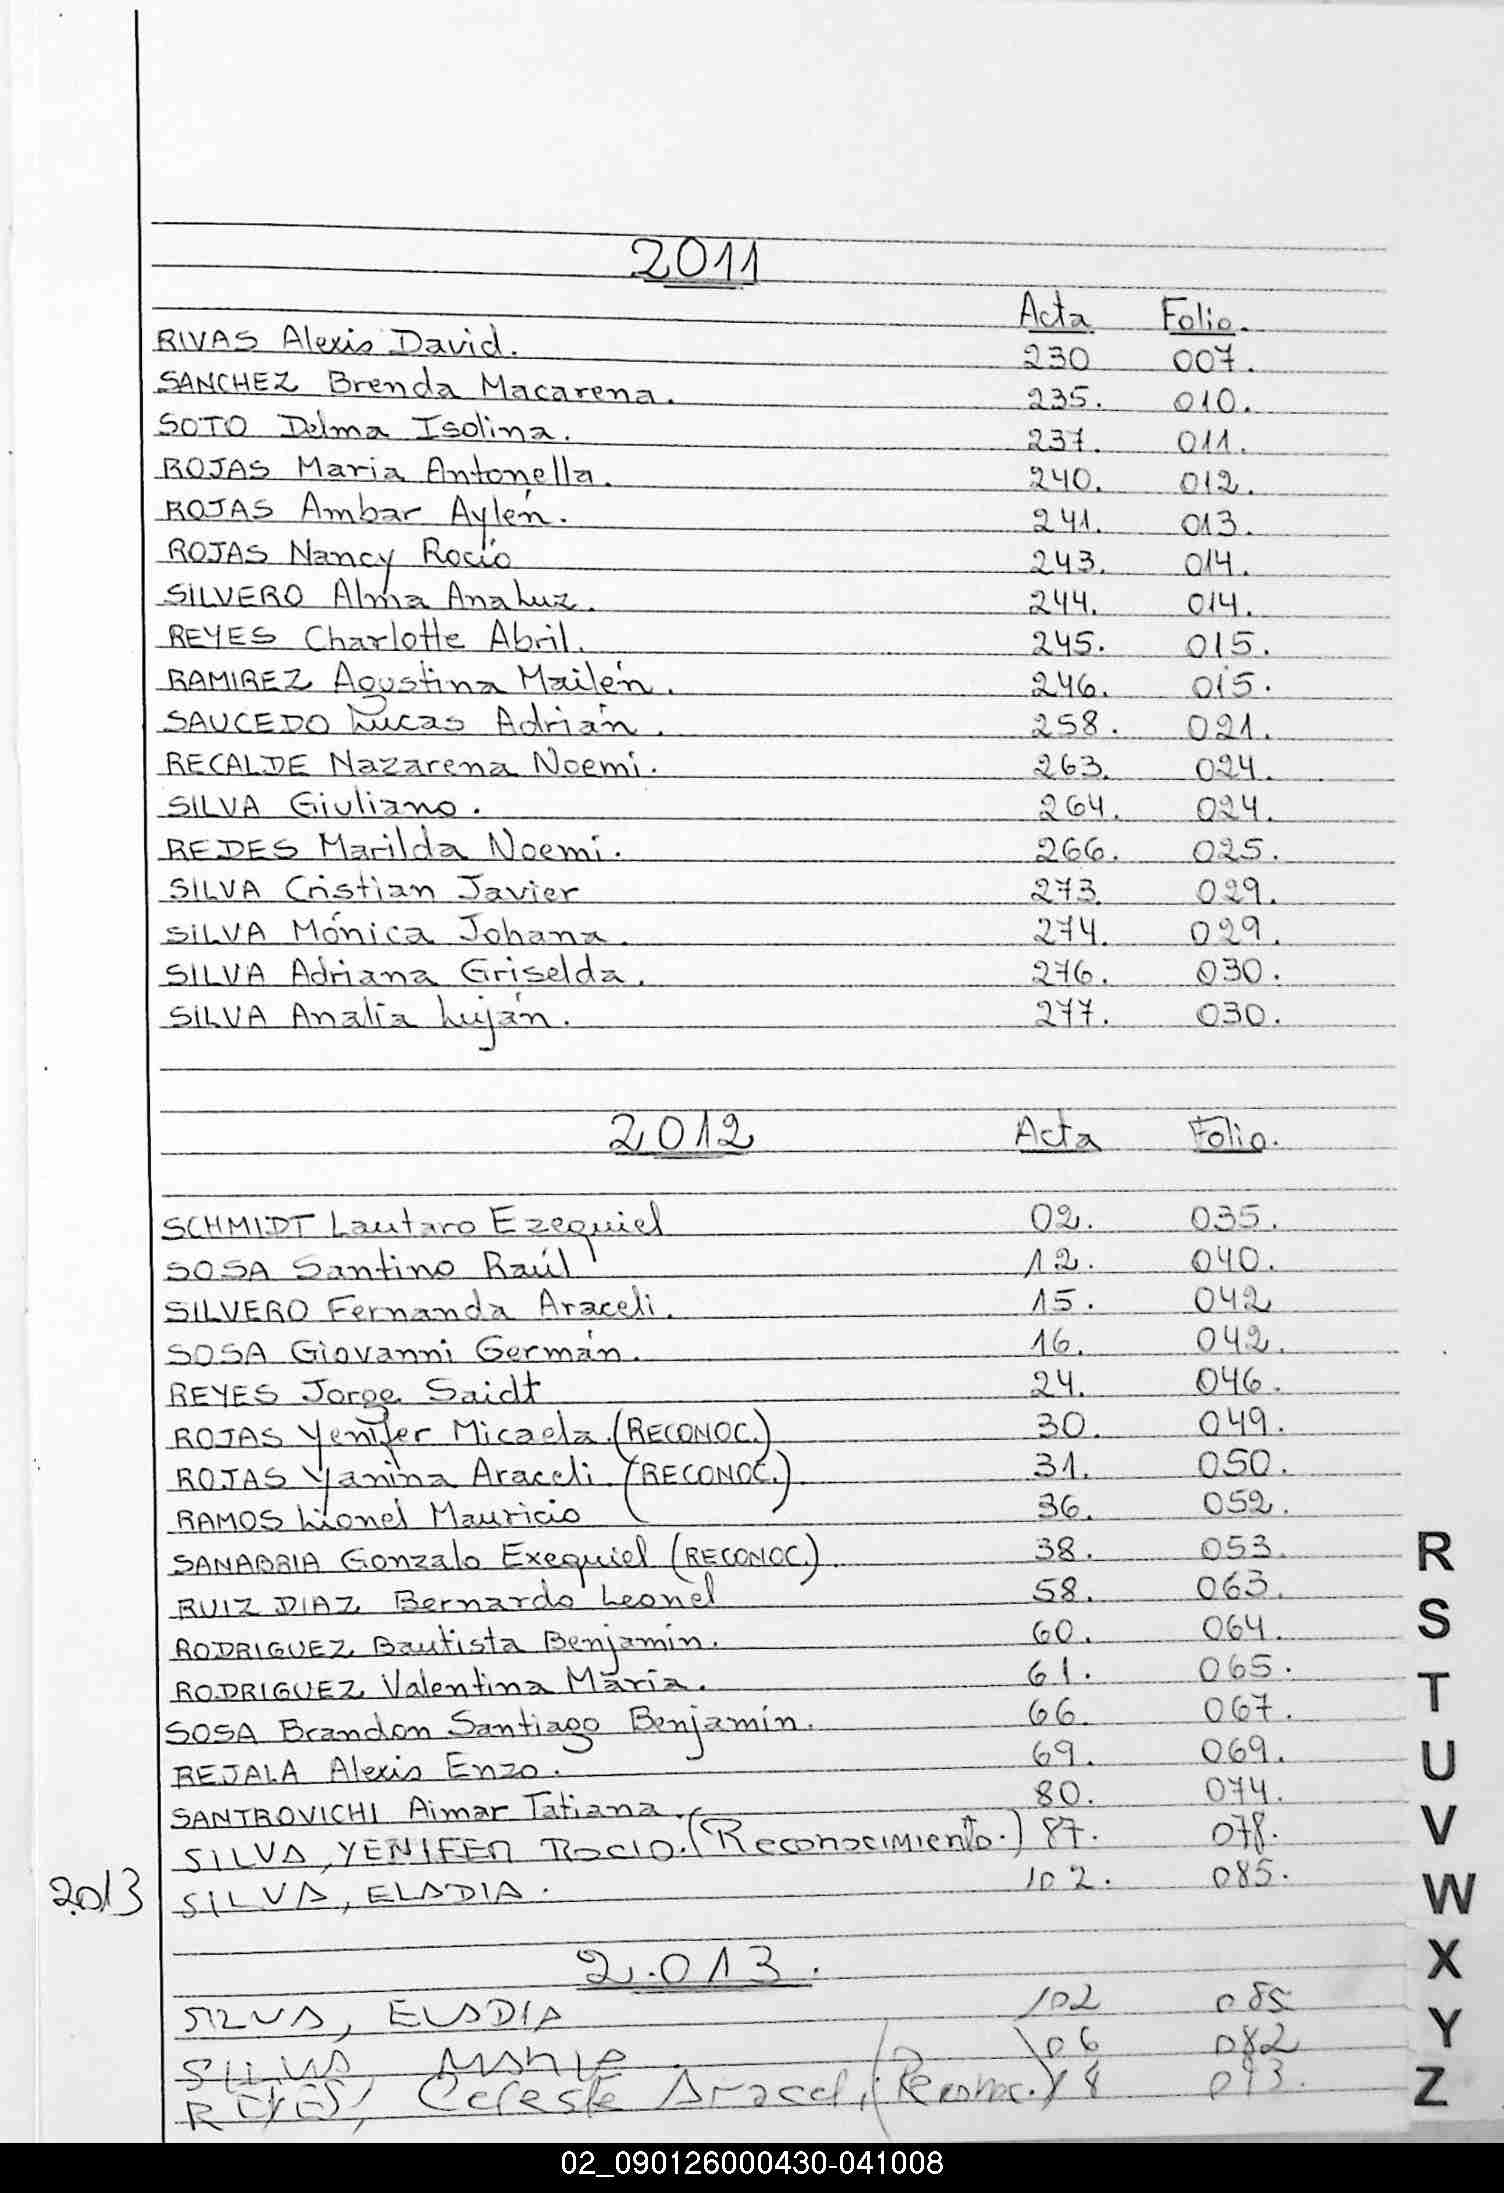 2011
Acta Folio.
RIVAS Alexis David. 230 007.
SANCHEZ Brenda Macarena. 235. 010.
SOTO Delma Isolina. 237. 011.
ROJAS Maria Antonella. 240. 012.
ROJAS Ambar Aylén. 241. 013.
ROJAS Nancy Rocío 243. 014.
SILVERO Alma Ana Luz. 244. 014.
REYES Charlotte Abril. 245. 015.
RAMIREZ Agustina Mailén. 246. 015.
SAUCEDO Lucas Adrián. 258. 021.
RECALDE Nazarena Noemi. 263. 024.
SILVA Giuliano. 264. 024.
REDES Marilda Noemi. 266. 025.
SILVA Cristian Javier 273. 029.
SILVA Mónica Johana. 274. 029.
SILVA Adriana Griselda. 276. 030.
SILVA Analía Luján. 277. 030.
2012 Acta Folio.
SCHMIDT Lautaro Ezequiel 02. 035.
SOSA Santino Raúl 12. 040.
SILVERO Fernanda Araceli. 15. 042
SOSA Giovanni Germán. 16. 042.
REYES Jorge Saidt 24. 046.
ROJAS Yenifer Micaela. (RECONOC.) 30. 049.
ROJAS Yanina Araceli (RECONOC.) 31. 050.
RAMOS Lionel Mauricio 36. 052.
SANABRIA Gonzalo Exequiel (RECONOC.) 38. 053.
RUIZ DIAZ Bernardo Leonel 58. 063.
RODRIGUEZ Bautista Benjamín. 60. 064.
RODRIGUEZ Valentina María. 61. 065.
SOSA Brandon Santiago Benjamín. 66. 067.
REJALA Alexis Enzo. 69. 069.
SANTROVICHI Aimar Tatiana. 80. 074.
SILVA, YENIFER ROCIO. (Reconocimiento.) 87. 078.
2013 SILVA, ELADIA. 102. 085.
2.013.
SILVA, ELADIA 102 085
SILVA, MARIA 106 082
REYES, Celeste Araceli, (Reconoc.) 18 093.
R
S
T
U
V
W
X
Y
Z
02_090126000430-041008